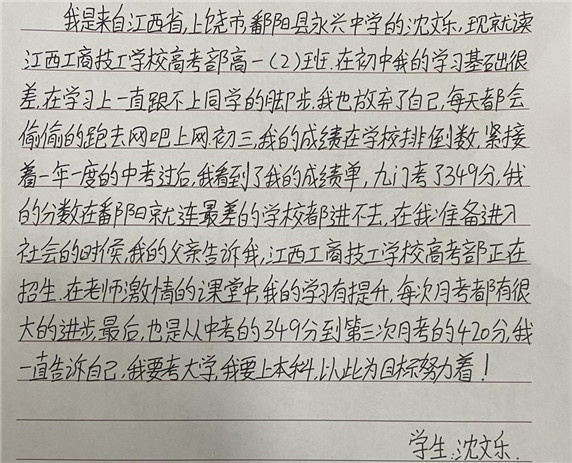 我是来自江西省,上饶市,鄱阳县永兴中学的沈文乐,现就读
江西工商技工学校高考部高一(2)班.在初中我的学习基础很
差,在学习上一直跟不上同学的脚步,我也放弃了自己,每天都会
偷偷的跑去网吧上网.初三,我的成绩在学校排倒数,紧接
着一年一度的中考过后,我看到了我的成绩单,九门考了349分,我
的分数在鄱阳就连最差的学校都进不去,在我准备进入
社会的时候,我的父亲告诉我,江西工商技工学校高考部正在
招生.在老师激情的课堂中,我的学习有提升,每次月考都有很
大的进步,最后,也是从中考的349分到第三次月考的420分,我
一直告诉自己,我要考大学,我要上本科,以此为目标努力着!
学生:沈文乐.